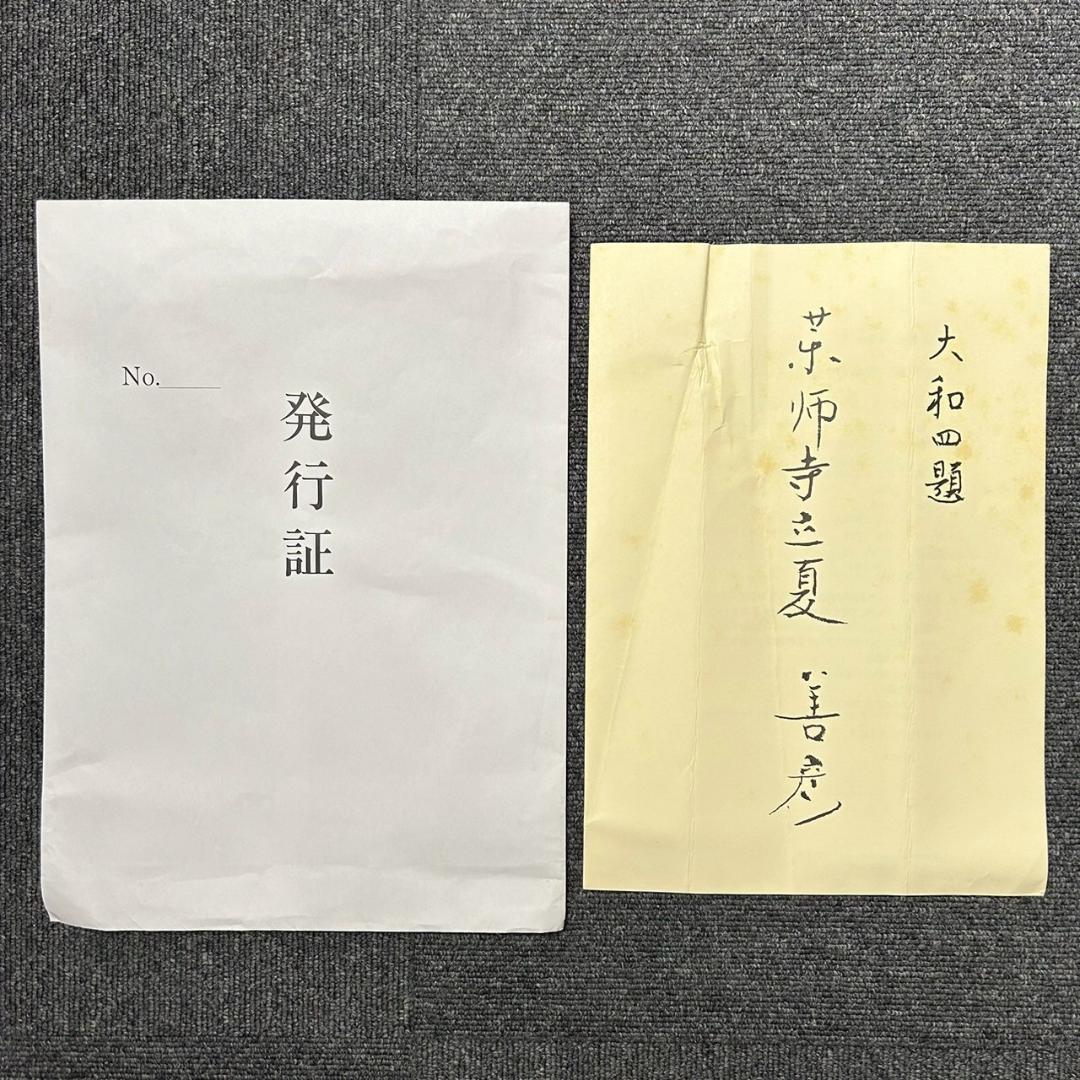 No.
発行証
大和四題
薬师寺立夏 善彦